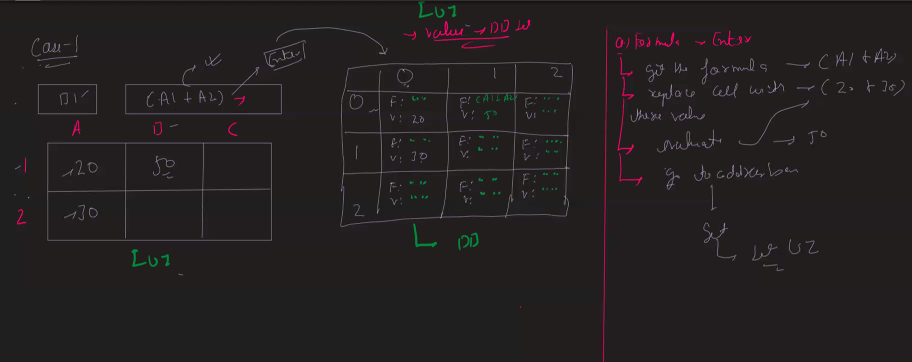 Case-1
B1
(A1 + A2)
Enter
A B C
1 20 50
2 30
UI
UI
→ value → DB set
0 1 2
0 F: " " F: (A1 A2) F: " "
V: 20 V: 50 V:
1 F: " " F: " " F: " "
V: 30 V: " " V: " "
2 F: " " F: " " F: " "
V: " " V: " " V: " "
DB
formula → Enter
get the formula → (A1 + A2)
replace cell with → (20 + 30)
these value
evaluate → 50
go to address bar
Set
UI